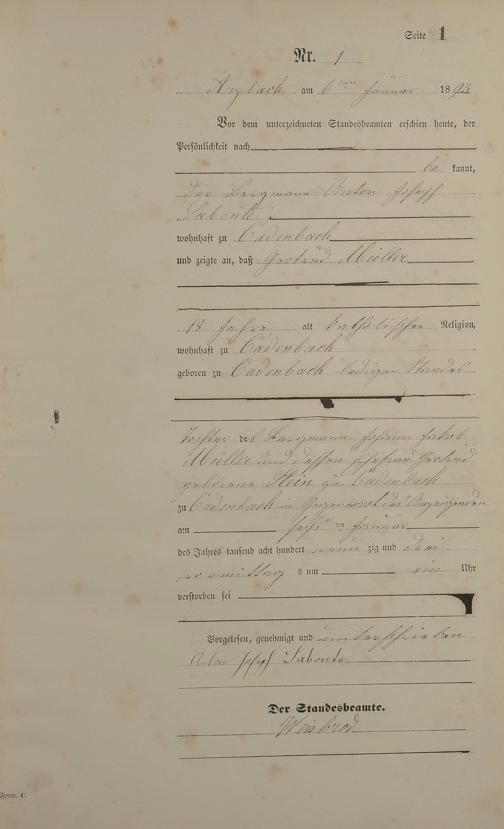 Seite 1
Nr. 1
Arzbach am 6ten Januar 1893
Vor dem unterzeichneten Standesbeamten erschien heute, der
Persönlichkeit nach
be kannt,
der Bergmann Anton Joseph
Labonte,
wohnhaft zu Cadenbach
und zeigte an, daß Gertrud Müller
18 Jahre alt katholischer Religion,
wohnhaft zu Cadenbach
geboren zu Cadenbach ledigen Standes
Tochter des Bergmann Johann Jakob
Müller und dessen Ehefrau Gertrud
geborene Klein zu Cadenbach
zu Cadenbach in Gegenwart des Anzeigenden
am sechsten Januar
des Jahres tausend acht hundert neun zig und drei
vormittags um ein Uhr
verstorben sei
Vorgelesen, genehmigt und unterschrieben
Anton Joseph Labonte
Der Standesbeamte.
Weisbrod
Form. C.